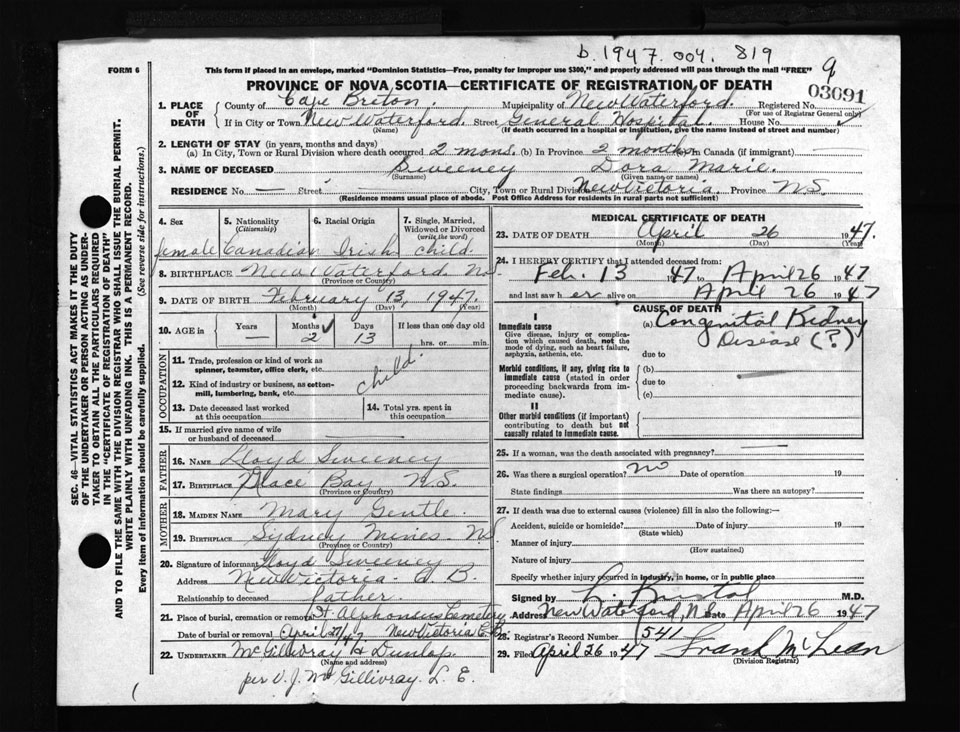 b. 1947. 004. 819
FORM 6
This form if placed in an envelope, marked "Dominion Statistics—Free, penalty for improper use $300," and properly addressed will pass through the mail "FREE"
9
PROVINCE OF NOVA SCOTIA—CERTIFICATE OF REGISTRATION OF DEATH
03691
SEC. 46—VITAL STATISTICS ACT MAKES IT THE DUTY
OF THE UNDERTAKER OR PERSON ACTING AS UNDER-
TAKER TO OBTAIN ALL THE PARTICULARS REQUIRED
IN THE "CERTIFICATE OF REGISTRATION OF DEATH"
AND TO FILE THE SAME WITH THE DIVISION REGISTRAR WHO SHALL ISSUE THE BURIAL PERMIT.
WRITE PLAINLY WITH UNFADING INK. THIS IS A PERMANENT RECORD.
Every item of information should be carefully supplied. (See reverse side for instructions.)
1. PLACE OF DEATH
County of Cape Breton. Municipality of New Waterford. Registered No.
(For use of Registrar General only)
If in City or Town New Waterford. Street General Hospital. House No. ✓
(Name) (If death occurred in a hospital or institution, give the name instead of street and number)
2. LENGTH OF STAY (in years, months and days)
(a) In City, Town or Rural Division where death occurred 2 mons. (b) In Province 2 months (c) In Canada (if immigrant) —
3. NAME OF DECEASED Sweeney Dora Marie.
(Surname) (Given name or names)
RESIDENCE No. — Street — City, Town or Rural Division New Victoria. Province N.S.
(Residence means usual place of abode. Post Office Address for residents in rural parts not sufficient)
4. Sex
female
5. Nationality
(Citizenship)
Canadian
6. Racial Origin
Irish
7. Single, Married,
Widowed or Divorced
(write the word)
child.
8. BIRTHPLACE New Waterford N.S.
(Province or Country)
9. DATE OF BIRTH February 13, 1947.
(Month) (Day) (Year)
10. AGE in
Years Months Days If less than one day old
— 2 ✓ 13 hrs. or min.
OCCUPATION
11. Trade, profession or kind of work as
spinner, teamster, office clerk, etc.
child.
12. Kind of industry or business, as cotton-
mill, lumbering, bank, etc.
13. Date deceased last worked
at this occupation
14. Total yrs. spent in
this occupation
15. If married give name of wife
or husband of deceased —
FATHER
16. NAME Lloyd Sweeney
17. BIRTHPLACE Glace Bay N.S.
(Province or Country)
MOTHER
18. MAIDEN NAME Mary Gentle.
19. BIRTHPLACE Sydney Mines N.S.
(Province or Country)
20. Signature of informant Lloyd Sweeney
Address New Victoria - C. B.
Relationship to deceased father.
21. Place of burial, cremation or removal St. Alphonsus Cemetery
Date of burial or removal April 27/47. New Victoria C.B.
22. UNDERTAKER McGillivray & Dunlop.
(Name and address)
per V. J. McGillivray. L. E.
MEDICAL CERTIFICATE OF DEATH
23. DATE OF DEATH April 26 1947.
(Month) (Day) (Year)
24. I HEREBY CERTIFY that I attended deceased from:
Feb. 13 1947 to April 26 1947
and last saw her alive on April 26 1947
CAUSE OF DEATH
I
Immediate cause
Give disease, injury or complica-
tion which caused death, not the
mode of dying, such as heart failure,
asphyxia, asthenia, etc.
(a) Congenital Kidney
Disease (?)
due to
Morbid conditions, if any, giving rise to
immediate cause (stated in order
proceeding backwards from im-
mediate cause).
(b)
due to
(c)
II
Other morbid conditions (if important)
contributing to death but not
causally related to immediate cause.
25. If a woman, was the death associated with pregnancy? —
26. Was there a surgical operation? no Date of operation 19
State findings Was there an autopsy?
27. If death was due to external causes (violence) fill in also the following:—
Accident, suicide or homicide? Date of injury 19
(State which)
Manner of injury
(How sustained)
Nature of injury
Specify whether injury occurred in industry, in home, or in public place
Signed by L. Kristal M.D.
Address New Waterford, N.S. Date April 26 1947
28. Registrar's Record Number 541
29. Filed April 26 1947 Frank McLean
(Division Registrar)